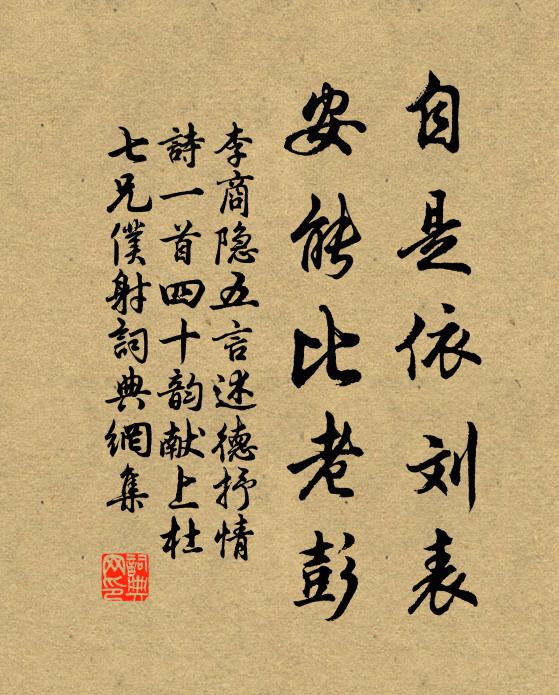 自是依刘表
安能比老彭
李商隐五言述德抒情
詩一首四十韵献上杜
七兄僕射詞典網集
詞典網印